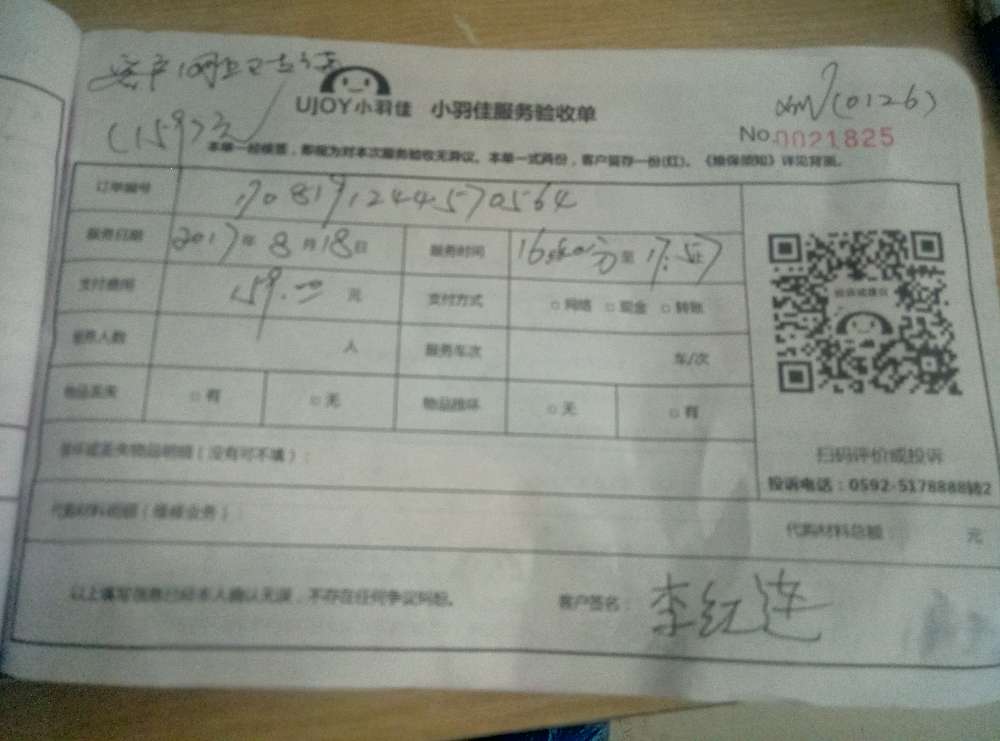 客户网上已支付
(159)元
UJOY小羽佳 小羽佳服务验收单
XM(0126)
No.0021825
本单一经接签,即视为对本次服务验收无异议。本单一式两份,客户留存一份(红)。《维保须知》详见背面。
订单编号 17081912445 70564
服务日期 2017年8月18日 服务时间 至17:57止
支付费用 159.00 元 支付方式 □网络 □现金 □转账
服务人数 人 服务车次 车/次
物品丢失 □有 □无 物品损坏 □无 □有
损坏或丢失物品明细(没有可不填):
扫码评价或投诉
投诉电话:0592-5178888转2
代购材料明细(维修业务): 代购材料总额 元
以上填写信息已经本人确认无误,不存在任何争议纠纷。 客户签名:李红连